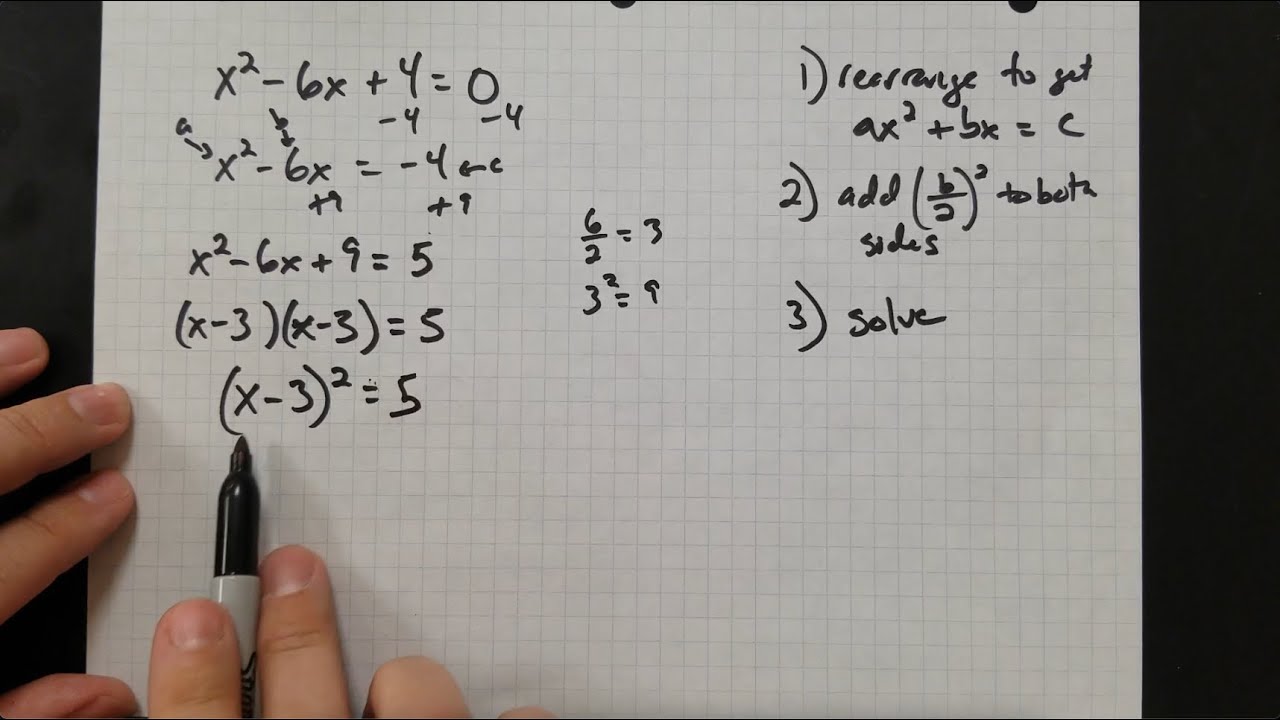 x² - 6x + 4 = 0
-4 -4
a b
x² - 6x = -4 ← c
+9 +9
x² - 6x + 9 = 5
(x-3)(x-3) = 5
(x-3)² = 5
6/2 = 3
3² = 9
1) rearrange to get
ax² + bx = c
2) add (b/2)² to both
sides
3) solve